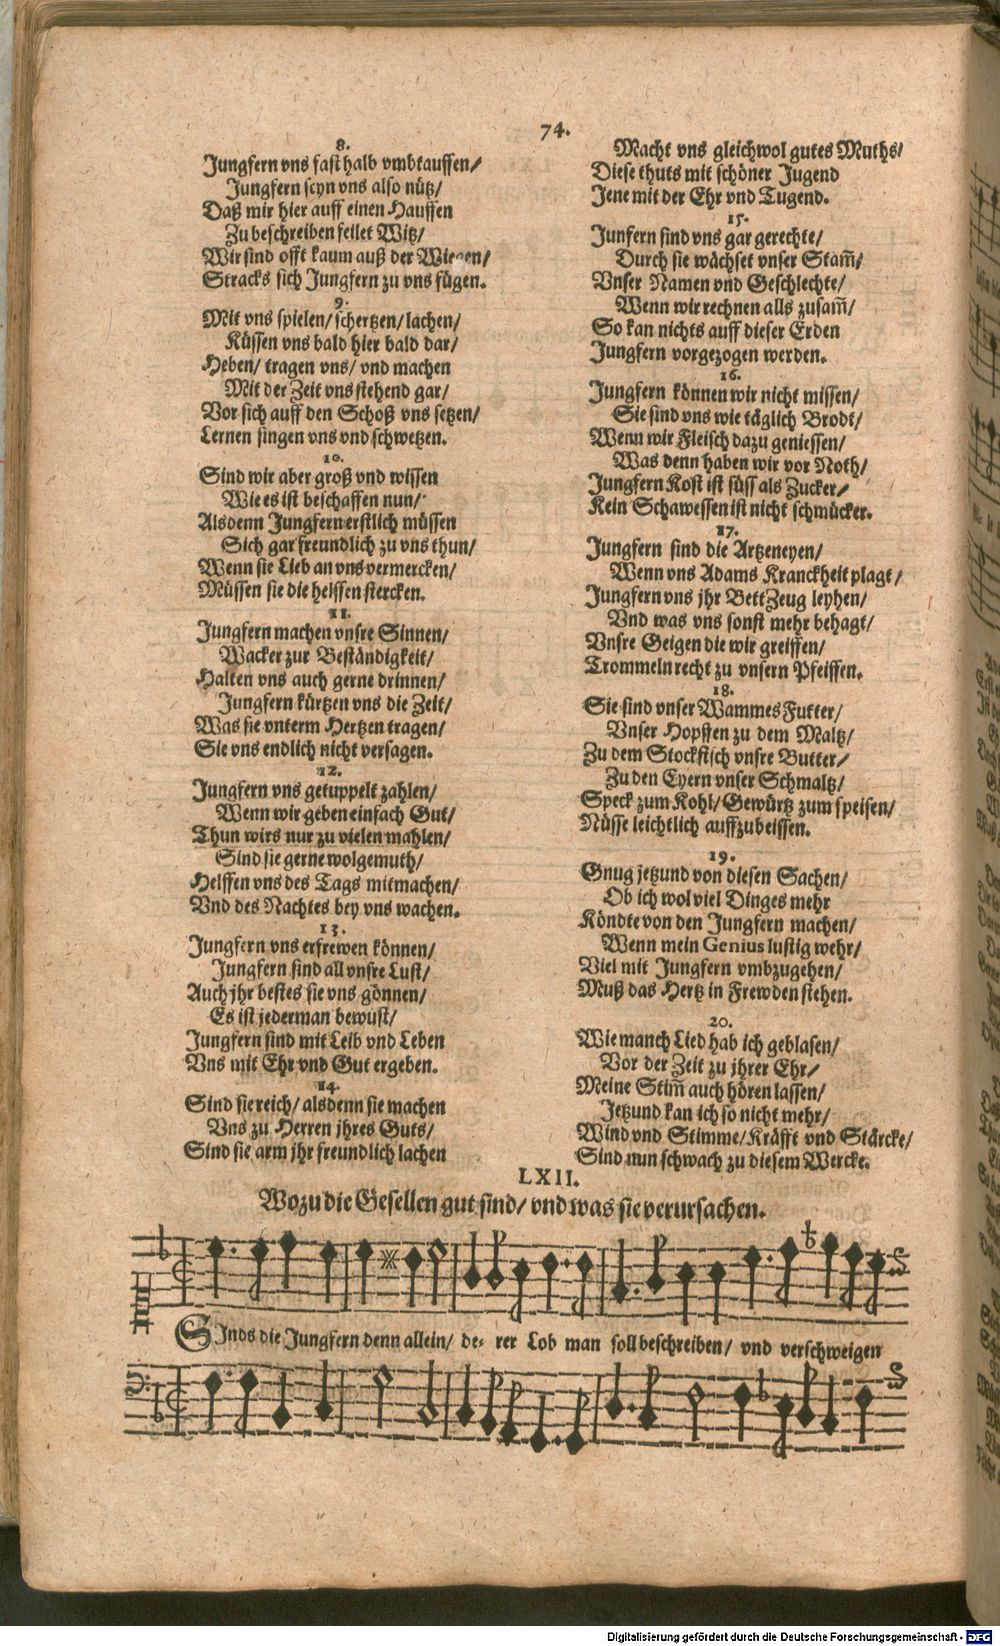 74.
8.
Jungfern vns fast halb vmbtauffen/
Jungfern seyn vns also nütz/
Daß mir hier auff einen Hauffen
Zu beschreiben feilet Witz/
Wir sind offt kaum auß der Wiegen/
Stracks sich Jungfern zu vns fügen.
9.
Mit vns spielen/ schertzen/ lachen/
Küssen vns bald hier bald dar/
Heben/ tragen vns/ vnd machen
Mit der Zeit vns stehend gar/
Vor sich auff den Schoß vns setzen/
Lernen singen vns vnd schwetzen.
10.
Sind wir aber groß vnd wissen
Wie es ist beschaffen nun/
Alsdenn Jungfern erstlich müssen
Sich gar freundlich zu vns thun/
Wenn sie Lieb an vns vermercken/
Müssen sie die helffen stercken.
11.
Jungfern machen vnsre Sinnen/
Wacker zur Beständigkeit/
Halten vns auch gerne drinnen/
Jungfern kürtzen vns die Zeit/
Was sie vnterm Hertzen tragen/
Sie vns endlich nicht versagen.
12.
Jungfern vns getuppelt zahlen/
Wenn wir geben einfach Gut/
Thun wirs nur zu vielen mahlen/
Sind sie gerne wolgemuth/
Helffen vns des Tags mitmachen/
Vnd des Nachtes bey vns wachen.
13.
Jungfern vns erfrewen können/
Jungfern sind all vnsre Lust/
Auch jhr bestes sie vns gönnen/
Es ist jederman bewust/
Jungfern sind mit Leib vnd Leben
Vns mit Ehr vnd Gut ergeben.
14.
Sind sie reich/ alsdenn sie machen
Vns zu Herren jhres Guts/
Sind sie arm jhr freundlich lachen
Macht vns gleichwol gutes Muths/
Diese thuts mit schöner Jugend
Jene mit der Ehr vnd Tugend.
15.
Junfern sind vns gar gerechte/
Durch sie wächset vnser Stam̃/
Vnser Namen vnd Geschlechte/
Wenn wir rechnen alls zusam̃/
So kan nichts auff dieser Erden
Jungfern vorgezogen werden.
16.
Jungfern können wir nicht missen/
Sie sind vns wie täglich Brodt/
Wenn wir Fleisch dazu geniessen/
Was denn haben wir vor Noth/
Jungfern Kost ist süss als Zucker/
Kein Schawessen ist nicht schmücker.
17.
Jungfern sind die Artzeneyen/
Wenn vns Adams Kranckheit plagt/
Jungfern vns jhr BettZeug leyhen/
Vnd was vns sonst mehr behagt/
Vnsre Geigen die wir greiffen/
Trommeln recht zu vnsern Pfeiffen.
18.
Sie sind vnser Wammes Futter/
Vnser Hopffen zu dem Maltz/
Zu dem Stockfisch vnsre Butter/
Zu den Eyern vnser Schmaltz/
Speck zum Kohl/ Gewürtz zum speisen/
Nüsse leichtlich auffzubeissen.
19.
Gnug jetzund von diesen Sachen/
Ob ich wol viel Dinges mehr
Köndte von den Jungfern machen/
Wenn mein Genius lustig wehr/
Viel mit Jungfern vmbzugehen/
Muß das Hertz in Frewden stehen.
20.
Wie manch Lied hab ich geblasen/
Vor der Zeit zu jhrer Ehr/
Meine Stim̃ auch hören lassen/
Jetzund kan ich so nicht mehr/
Wind vnd Stimme/ Kräfft vnd Stärcke/
Sind nun schwach zu diesem Wercke.
LXII.
Wozu die Gesellen gut sind/ vnd was sie verursachen.
SInds die Jungfern denn allein/ de- rer Lob man soll beschreiben/ vnd verschweigen
Digitalisierung gefördert durch die Deutsche Forschungsgemeinschaft - DFG